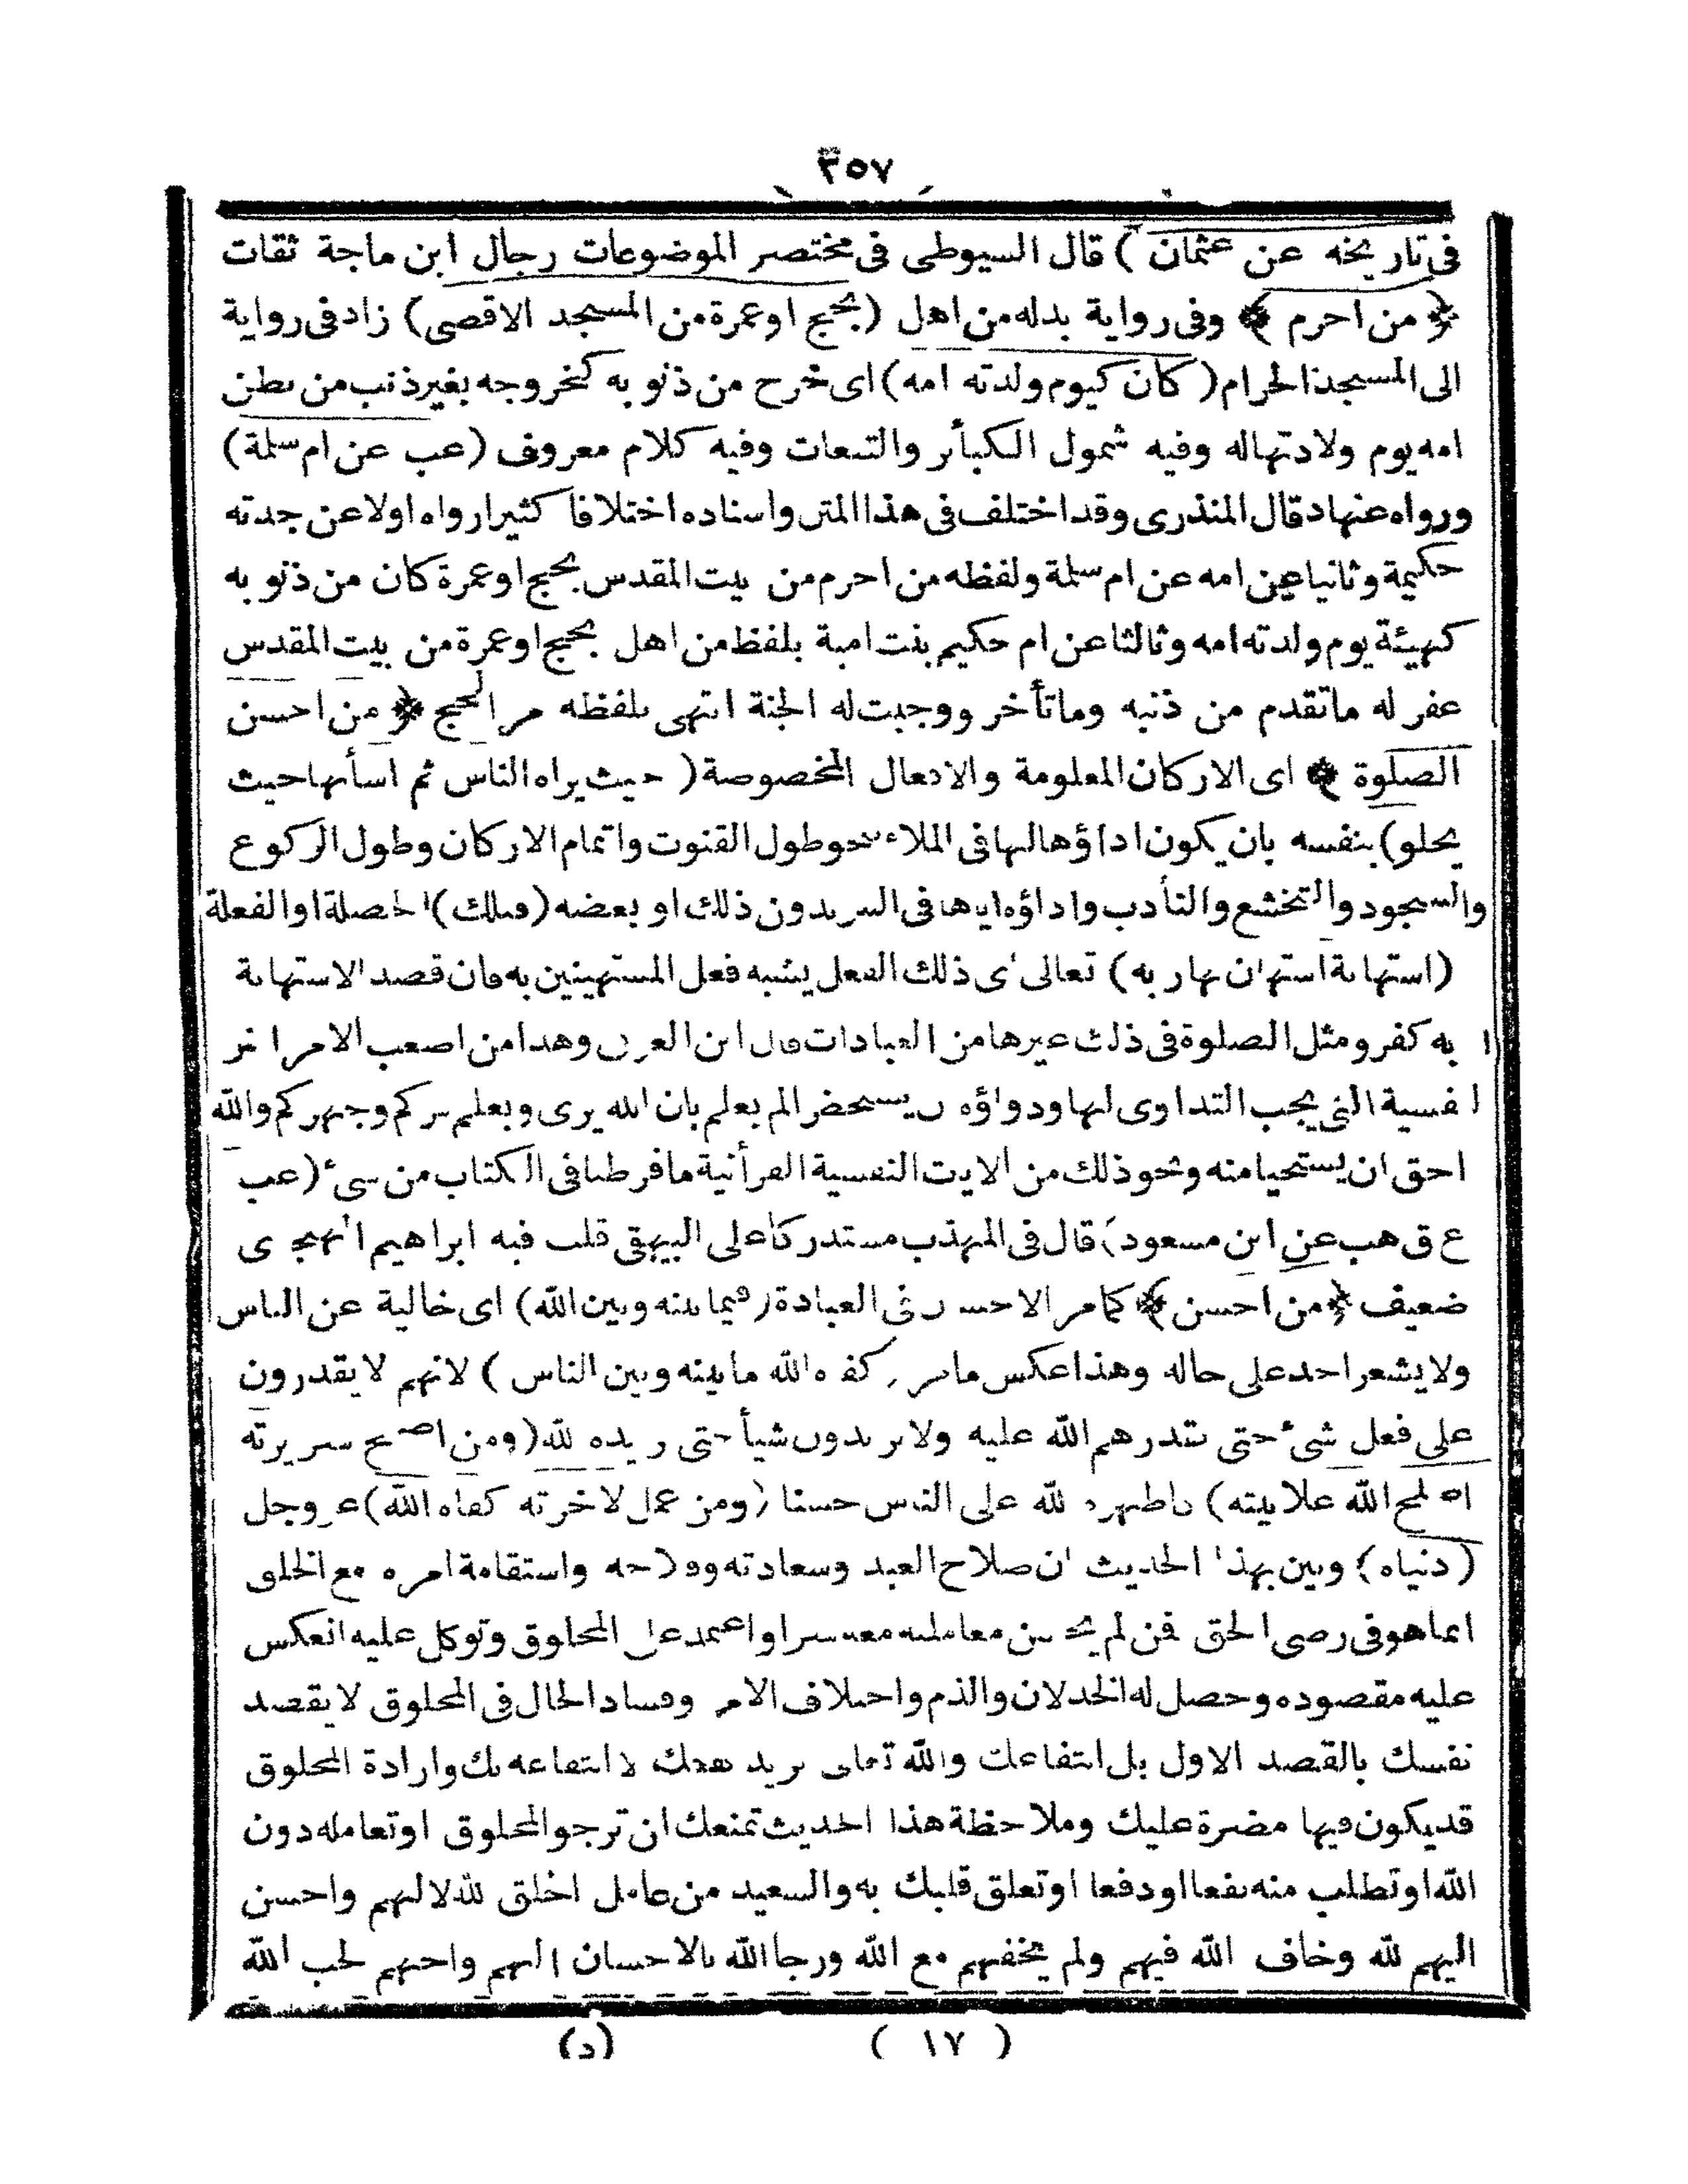 ٣٥٧
فى تاريخه عن عثمان ) قال السيوطى فى مختصر الموضوعات رجال ابن ماجة ثقات
﴿ من احرم ﴾ وفى رواية بدله من اهل (بحج اوعمرة من المسجد الاقصى) زاد فى رواية
الى المسجد الحرام (كان كيوم ولدته امه) اى خرح من ذنوبه كخروجه بغير ذنب من بطن
امه يوم ولادتها له وفيه شمول الكبائر والتبعات وفيه كلام معروف (عب عن ام سلمة)
ورواه عنها د قال المنذرى وقد اختلف فى هذا المتن واسناده اختلافا كثيرا رواه اولا عن جدته
حكيمة وثانيا عن امه عن ام سلمة ولفظه من احرم من بيت المقدس بحج اوعمرة كان من ذنوبه
كهيئة يوم ولدته امه وثالثا عن ام حكيم بنت امية بلفظ من اهل بحج اوعمرة من بيت المقدس
غفر له ماتقدم من ذنبه وماتأخر ووجبت له الجنة انتهى بلفظه مر الحج ﴿ من احسن
الصلوة ﴾ اى الاركان المعلومة والافعال المخصوصة (حيث يراه الناس ثم اسأها حيث
يخلو) بنفسه بان يكون اداؤها لها فى الملاء نحو طول القنوت واتمام الاركان وطول الركوع
والسجود والتخشع والتأدب واداؤه اياها فى السر بدون ذلك او بعضه (فتلك) الخصلة او الفعلة
(استهانة استهان بها ربه) تعالى اى ذلك الفعل يشبه فعل المستهينين به فان قصد الاستهانة
به كفر ومثل الصلوة فى ذلك غيرها من العبادات قال ابن العربى وهذا من اصعب الامراض
النفسية التى يجب التداوى لها ودواؤه ان يستحضر الم يعلم بان الله يرى ويعلم سركم وجهركم والله
احق ان يستحيا منه ونحو ذلك من الايات النفسية القرأنية مافرطنا فى الكتاب من شئ (عب
ع ق هب عن ابن مسعود) قال فى المهذب مستدركا على البيهقى قلت فيه ابراهيم الهجرى
ضعيف ﴿ من احسن ﴾ كمامر الاحسان فى العبادة (فيما بينه وبين الله) اى خالية عن الناس
ولا يشعر احد على حاله وهذا عكس مامر (كفاه الله مابينه وبين الناس ) لانهم لا يقدرون
على فعل شئ حتى يقدرهم الله عليه ولا يريدون شيأ حتى يريده لله (ومن اصلح سريرته
اصلح الله علانيته) باظهره لله على الناس حسنا (ومن عمل لآخرته كفاه الله) عز وجل
(دنياه) وبين بهذا الحديث ان صلاح العبد وسعادته وفلاحه واستقامة امره مع الخلق
انماهو فى رضى الحق فمن لم يحسن معاملته معه سرا واعتمد على المخلوق وتوكل عليه انعكس
عليه مقصوده وحصل له الخذلان والذم واختلاف الامر وفساد الحال فى المخلوق لا يقصد
نفسك بالقصد الاول بل انتفاعك والله تعالى يريد نفعك لا انتفاعه بك وارادة المخلوق
قديكون فيها مضرة عليك وملاحظة هذا الحديث تمنعك ان ترجو المخلوق اوتعامله دون
الله اوتطلب منه نفعا اودفعا اوتعلق قلبك به والسعيد من عامل الخلق لله لا لهم واحسن
اليهم لله وخاف الله فيهم ولم يخفهم مع الله ورجا الله بالاحسان اليهم واحبهم لحب الله
( ١٧ ) (د)